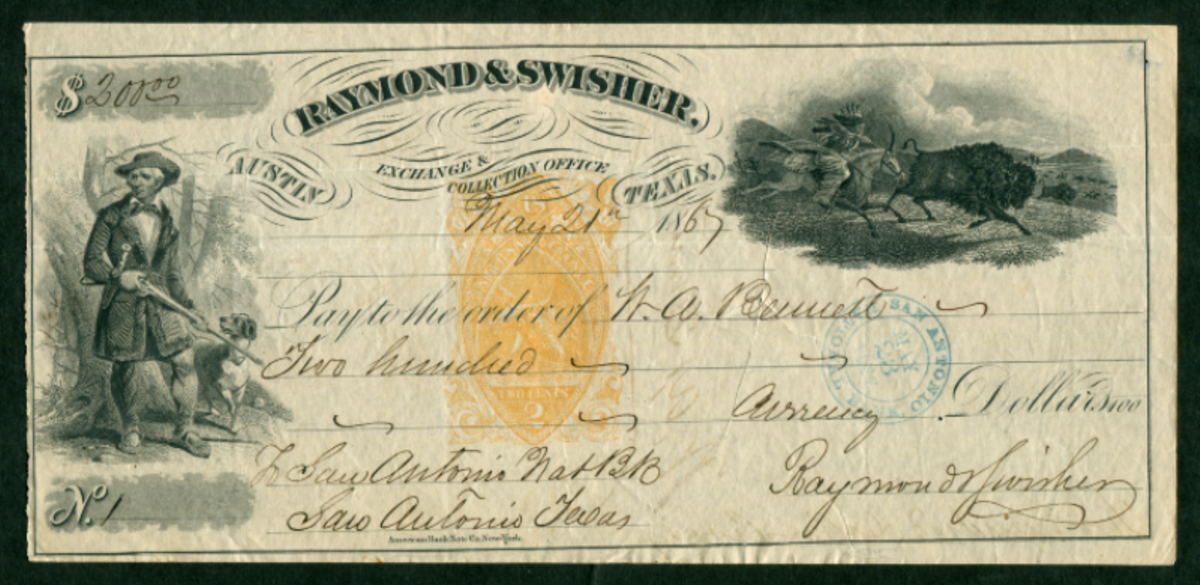 $200.00
RAYMOND & SWISHER.
AUSTIN EXCHANGE & COLLECTION OFFICE TEXAS.
May 21st 1867
Pay to the order of W. A. Bennett
Two hundred
TWO CENTS
2
Currency Dollars
SAN ANTONIO
MAY
23
To San Antonio Nat Bk
Raymond & Swisher
San Antonio Texas
No. 1
American Bank Note Co. New-York.